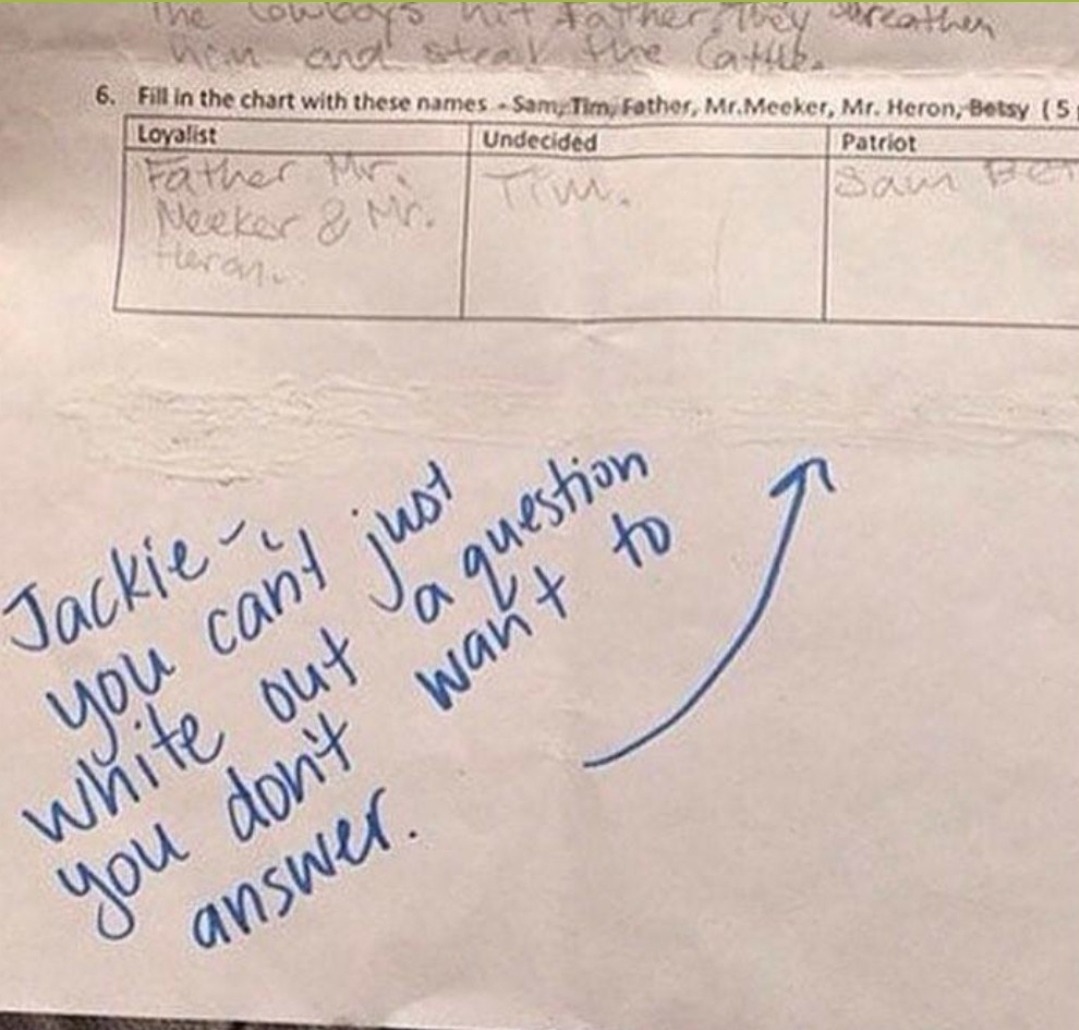 The Cowboys hit father. They threathen
him and steal the Cattle.
6. Fill in the chart with these names - Sam, Tim, Father, Mr.Meeker, Mr. Heron, Betsy ( 5
Loyalist Undecided Patriot
Father Mr. Tim. Sam Bet
Meeker & Mr.
Heron.
Jackie -
you can't just
white out a question
you don't want to
answer.